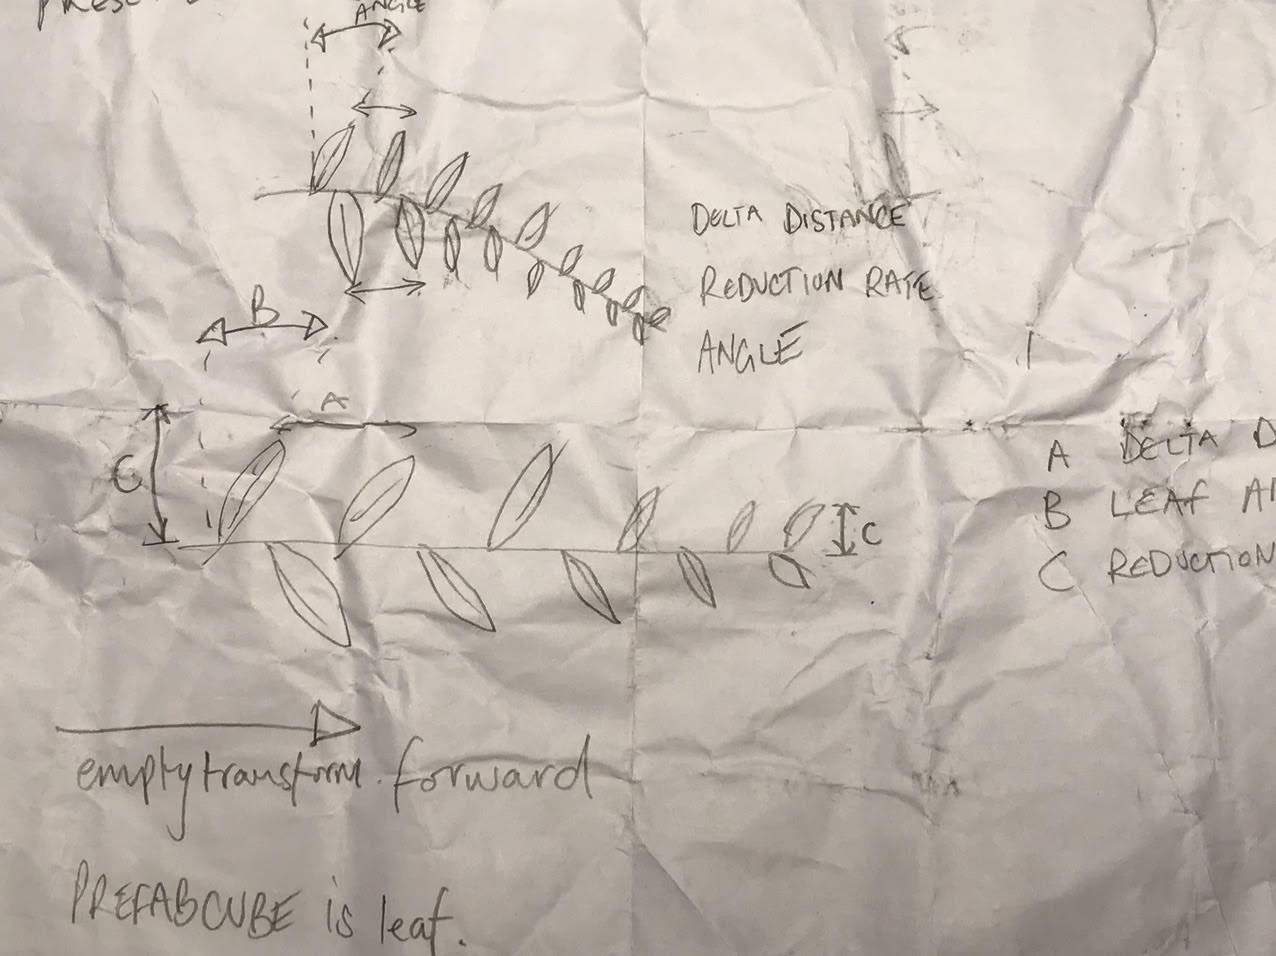 ANGLE
DELTA DISTANCE
REDUCTION RATE
ANGLE
B
A
C
C
A DELTA D
B LEAF
C REDUCTION
emptytransform.forward
PREFABCUBE is leaf.